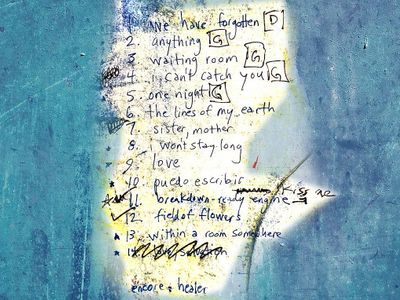 1. we have forgotten D
2. anything G
3. waiting room G
4. i can't catch you G
5. one night G
6. the lines of my earth
7. sister, mother
8. I won't stay long
9. love
10. puedo escribir
11. breakdown ready engine kiss me
12. field of flowers
13. within a room somewhere
14.
encore: healer